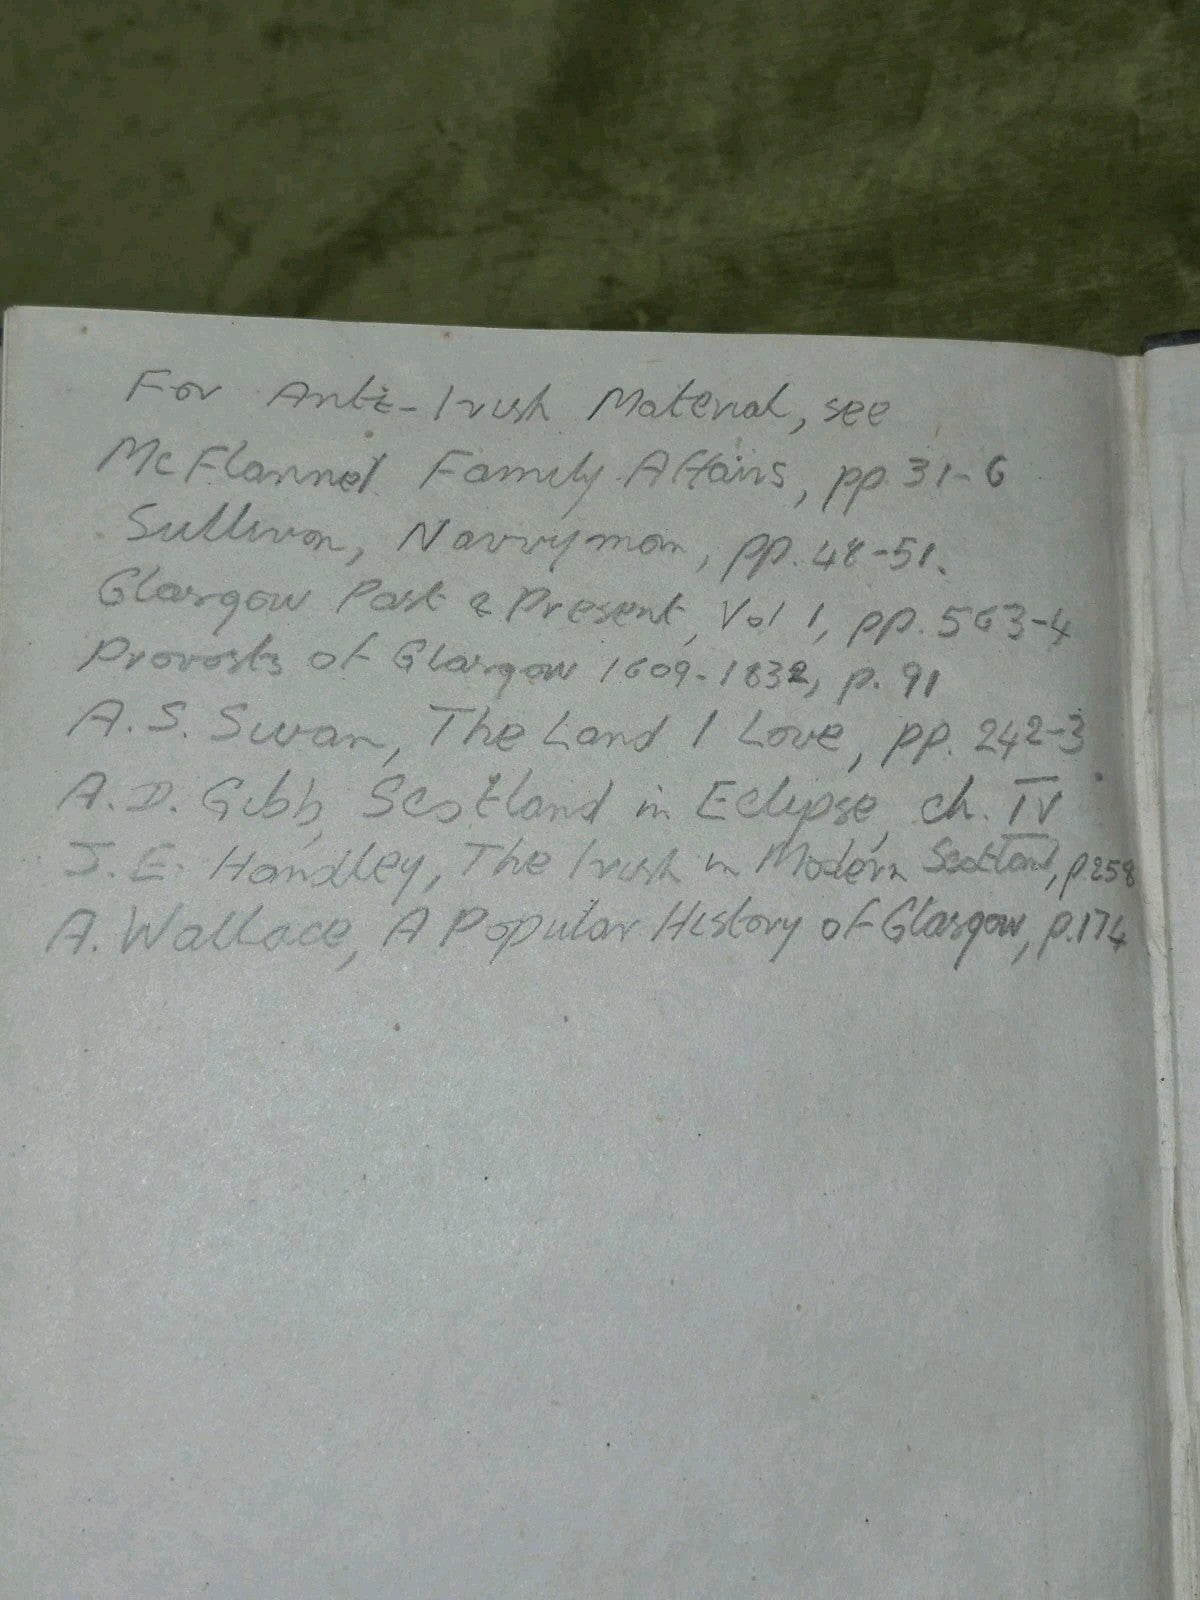 For Anti-Irish Material, see
McFlannel Family Affairs, pp. 31-6
Sullivan, Navvyman, pp. 48-51.
Glasgow Past & Present, Vol 1, pp. 563-4
Provosts of Glasgow 1609-1832, p. 91
A. S. Swan, The Land I Love, pp. 242-3
A. D. Gibb, Scotland in Eclipse, ch. IV
J. E. Handley, The Irish in Modern Scotland, p. 258
A. Wallace, A Popular History of Glasgow, p. 174